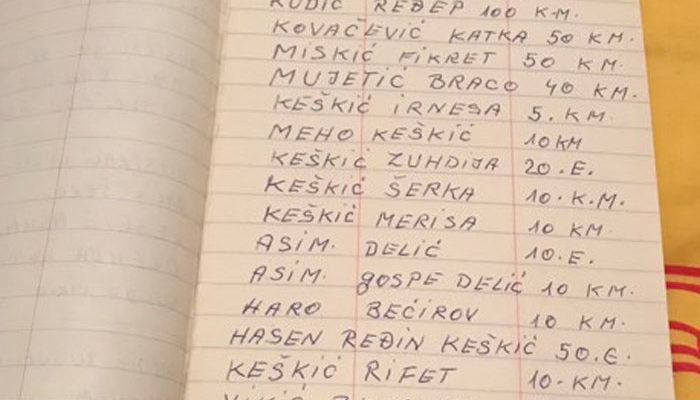 KUDIĆ REĐEP 100 K.M.
KOVAČEVIĆ KATKA 50 KM.
MISKIĆ FIKRET 50 KM.
MUJETIĆ BRACO 40 KM.
KEŠKIĆ IRNESA 5. KM.
MEHO KEŠKIĆ 10 KM
KEŠKIĆ ZUHDIJA 20. E.
KEŠKIĆ ŠERKA 10. K.M.
KEŠKIĆ MERISA 10 KM
ASIM. DELIĆ 10. E.
ASIM. gOSPE DELIĆ 10 KM.
HARO BEĆIROV 10 KM.
HASEN REĐIN KEŠKIĆ 50. E.
KEŠKIĆ RIFET 10. KM.